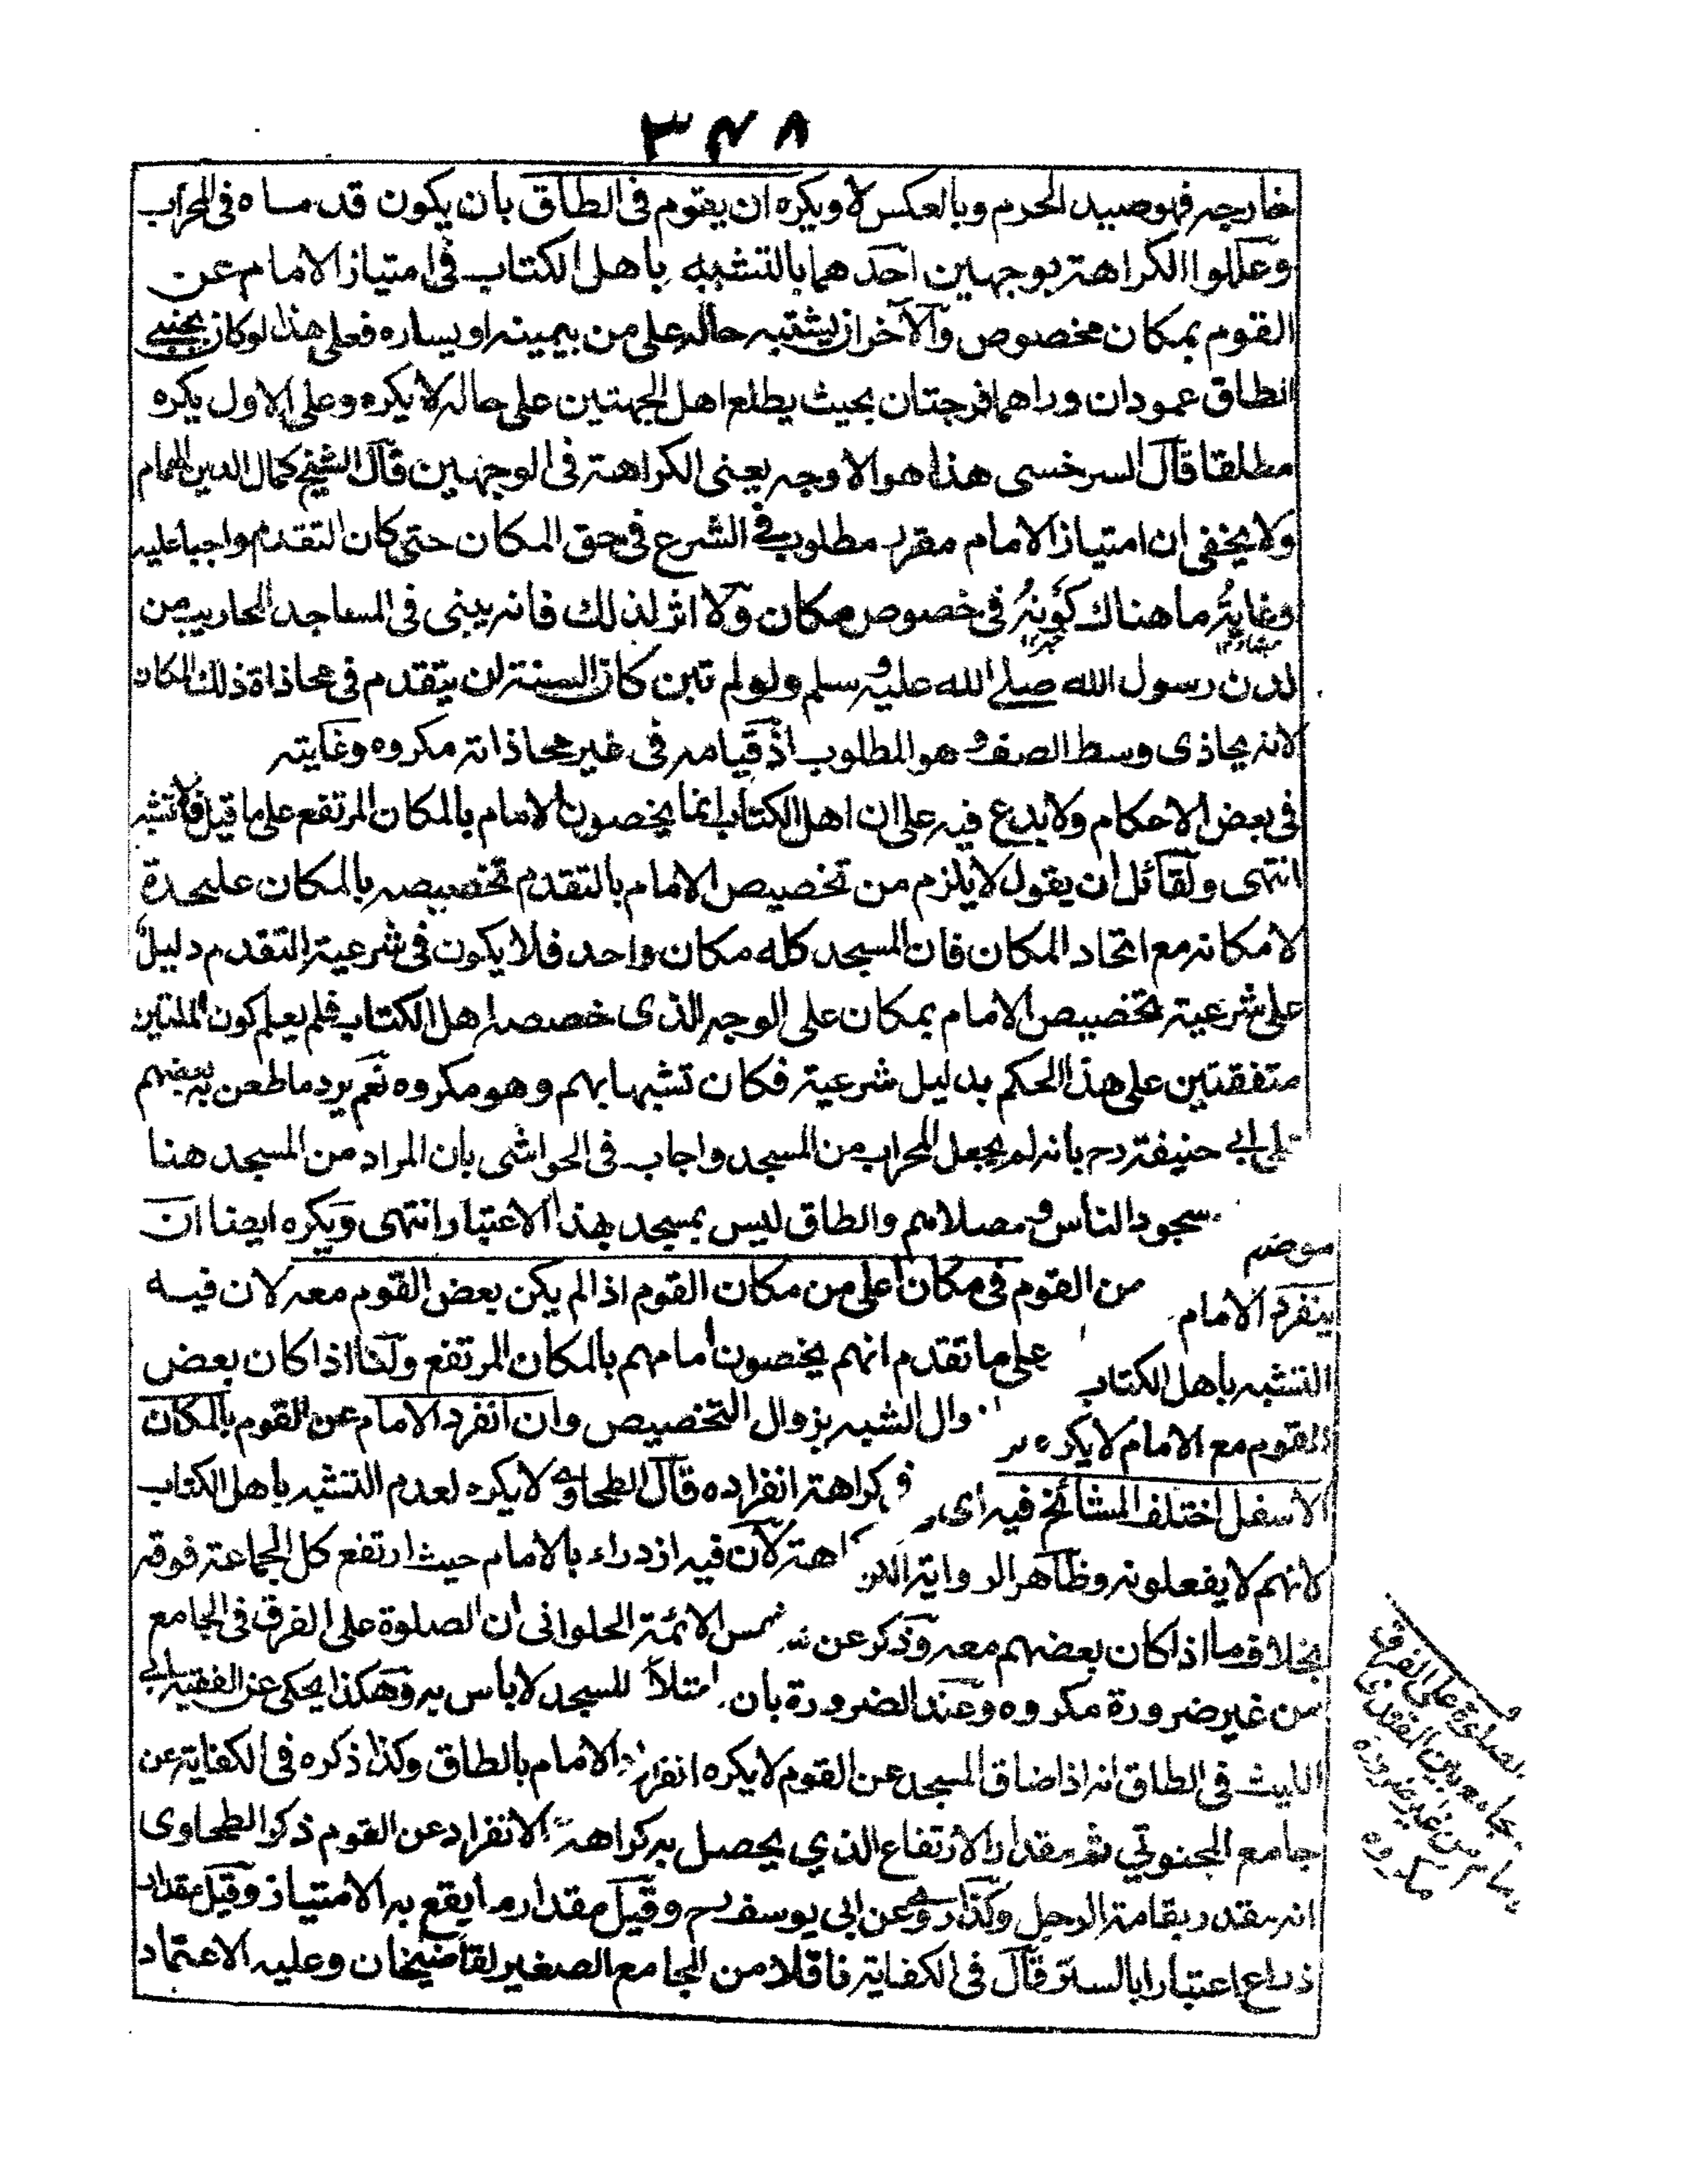 ٣٤٨
خارجه فهو صيد الحرم وبالعكس لا ويكره ان يقوم فى الطاق بان يكون قدماه فى المحراب
وعللوا الكراهة بوجهين احدهما بالتشبه باهل الكتاب فى امتياز الامام عن
القوم بمكان مخصوص والآخر ان يشتبه حاله على من بيمينه او يساره فعلى هذا لو كان بجنبى
الطاق عمودان وراهما فرجتان بحيث يطلع اهل الجهتين على حاله لا يكره وعلى الاول يكره
مطلقا قال السرخسى هذا هو الاوجه يعنى الكراهة فى الوجهين قال الشيخ كمال الدين الهمام
ولا يخفى ان امتياز الامام مقرر مطلوب فى الشرع فى حق المكان حتى كان التقدم واجبا عليه
وغاية ما هناك كونه فى خصوص مكان ولا اثر لذلك فانه يبنى فى المساجد المحاريب من
لدن رسول الله صلى الله عليه وسلم ولو لم تبن كان السنة ان يتقدم فى محاذاة ذلك المكان
لانه يحاذى وسط الصف وهو المطلوب اذ قيامه فى غير محاذاته مكروه وغايته
فى بعض الاحكام ولا بدع فيه على ان اهل الكتاب انما يخصون الامام بالمكان المرتفع على ما قيل فلا تشبه
انتهى ولقائل ان يقول لا يلزم من تخصيص الامام بالتقدم تخصيصه بالمكان عليحدة
لامكانه مع اتحاد المكان فان المسجد كله مكان واحد فلا يكون فى شرعية التقدم دليل
على شرعية تخصيص الامام بمكان على الوجه الذى خصصه اهل الكتاب فلم يعلم كون الملتين
متفقتين على هذا الحكم بدليل شرعية فكان تشبها بهم وهو مكروه نعم يرد ما طعن به بعضهم
على ابى حنيفة رح بانه لم يجعل المحراب من المسجد واجاب فى الحواشى بان المراد من المسجد هنا
موضع سجود الناس ومصلاهم والطاق ليس بمسجد بهذا الاعتبار انتهى ويكره ايضا ان
ينفرد الامام من القوم فى مكان اعلى من مكان القوم اذا لم يكن بعض القوم معه لان فيه
التشبه باهل الكتاب على ما تقدم انهم يخصون امامهم بالمكان المرتفع ولهذا اذا كان بعض
القوم مع الامام لا يكره وال الشبه بزوال التخصيص وان انفرد الامام عن القوم بالمكان
الاسفل اختلف المشائخ فيه اى فى كراهة انفراده قال الطحاوى لا يكره لعدم التشبه باهل الكتاب
لانهم لا يفعلونه وظاهر الرواية الكراهة لان فيه ازدراء بالامام حيث ارتفع كل الجماعة فوقه
بخلاف ما اذا كان بعضهم معه وذكر عن شمس الائمة الحلوانى ان الصلوة على الفرق فى الجامع
من غير ضرورة مكروه وعند الضرورة بان امتلأ المسجد لا باس به وهكذا يحكى عن الفقيه ابى
الليث فى الطاق انه اذا ضاق المسجد عن القوم لا يكره انفراد الامام بالطاق وكذا ذكره فى الكفاية عن
جامع المحبوبي ثم مقدار الارتفاع الذي يحصل به كراهة الانفراد عن القوم ذكر الطحاوى
انه مقدر بقامة الرجل وكذا روى عن ابى يوسف رح وقيل مقدار ما يقع به الامتياز وقيل مقدار
ذراع اعتبارا بالسترة قال فى الكفاية ناقلا من الجامع الصغير لقاضيخان وعليه الاعتماد
الصلوة على الفرق
من غير ضرورة
مكروه